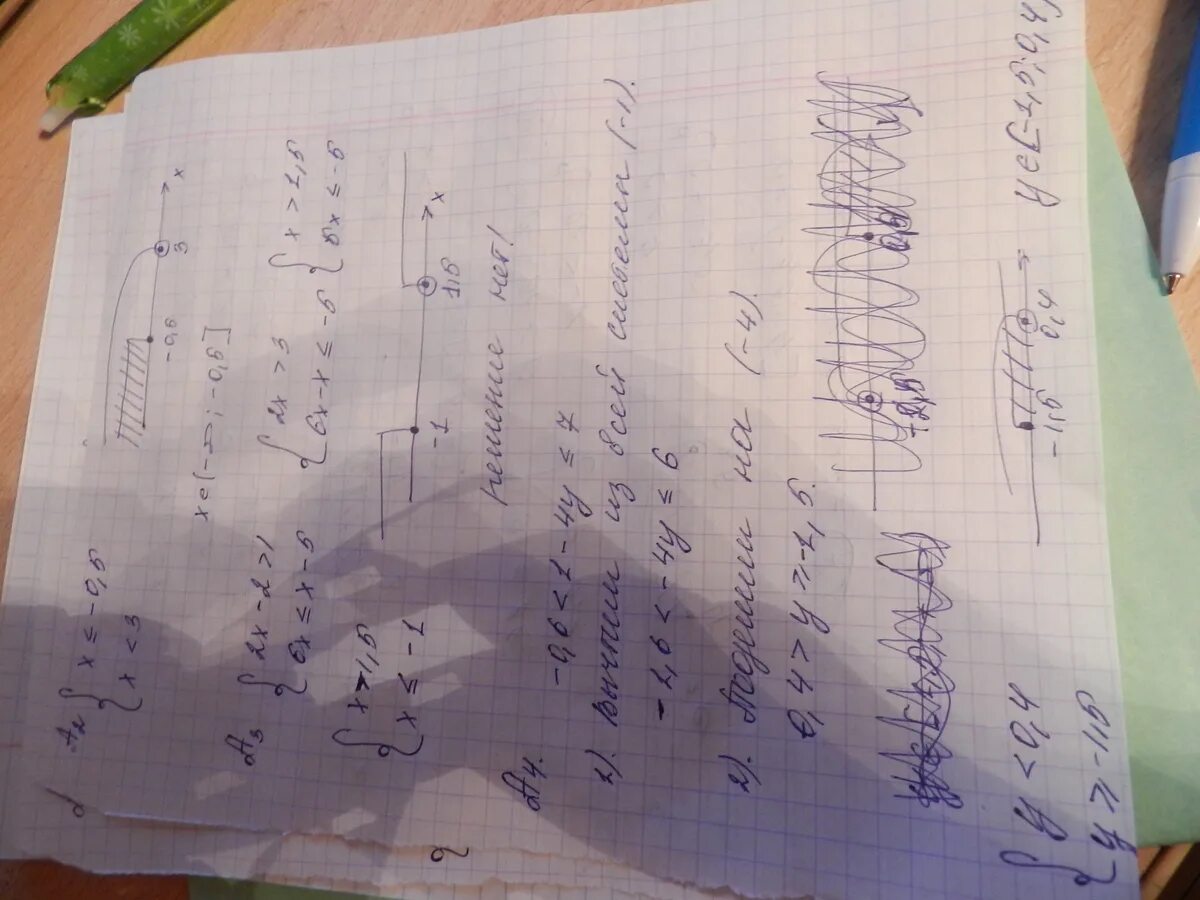 A₂ { x ≤ -0,5
x < 3
-0,5 3 x
x ∈ (-∞; -0,5]
A₃ { 2x - 2 > 1 { 2x > 3 { x > 1,5
6x ≤ x - 5 6x - x ≤ -5 5x ≤ -5
{ x > 1,5
x ≤ -1
-1 1,5 x
решение нет!
A4. -0,6 < 1 - 4y ≤ 7
1). Вычтем из всей системы (-1).
-1,6 < -4y ≤ 6
2). Поделим на (-4).
0,4 > y ≥ -1,5.
{ y < 0,4
y ≥ -1,5
-1,5 0,4
y ∈ [-1,5; 0,4)